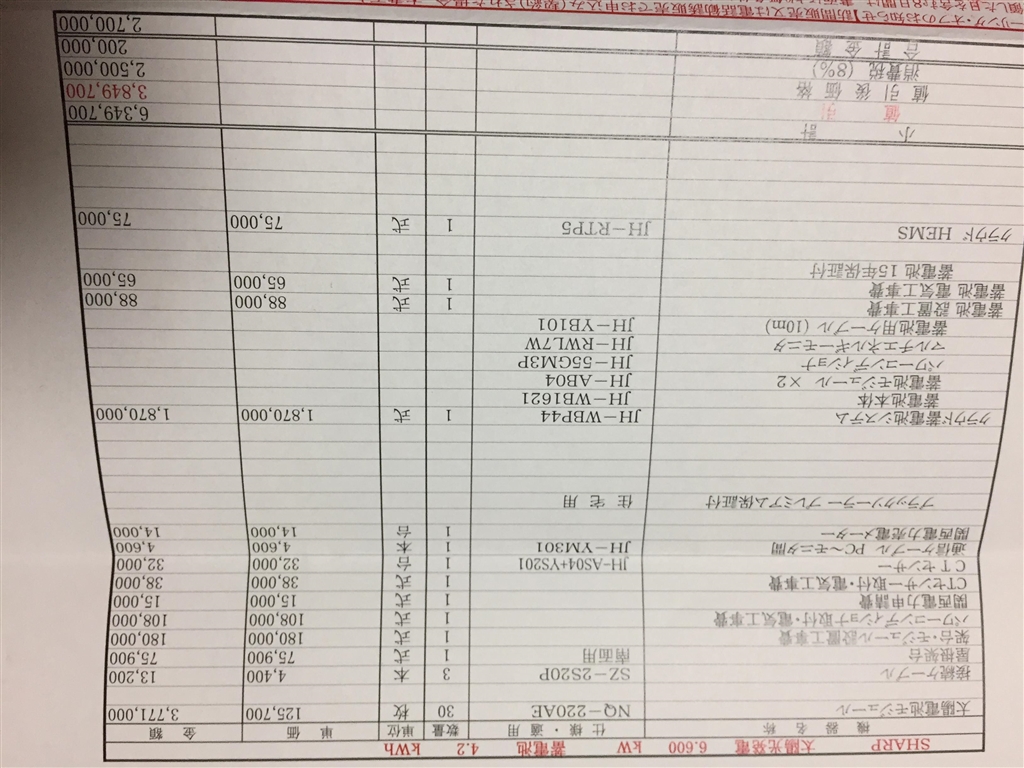 SHARP 太陽光発電 6.600 KW 蓄電池 4.2 kWh
機器名称 仕様・適用 数量 単位 単価 金額
太陽電池モジュール NQ-220AE 30 枚 125,700 3,771,000
接続ケーブル SZ-2S20P 3 本 4,400 13,200
屋根架台 南面用 1 式 75,900 75,900
架台・モジュール設置工事費 1 式 180,000 180,000
パワーコンディショナ取付・電気工事費 1 式 108,000 108,000
関西電力申請費 1 式 15,000 15,000
CTセンサー取付・電気工事費 1 式 38,000 38,000
CTセンサー JH-AS04+YS201 1 台 32,000 32,000
通信ケーブル PC~モニタ間 JH-YM301 1 本 4,600 4,600
関西電力売電メーター 1 台 14,000 14,000
ブラックソーラー プレミアム保証付 住宅用
クラウド蓄電池システム JH-WBP44 1 式 1,870,000 1,870,000
蓄電池本体 JH-WB1621
蓄電池モジュール ×2 JH-AB04
パワーコンディショナ JH-55GM3P
マルチエネルギーモニタ JH-RWL7W
蓄電池用ケーブル (10m) JH-YB101
蓄電池 設置工事費 1 式 88,000 88,000
蓄電池 電気工事費 1 式 65,000 65,000
蓄電池 15年保証付
クラウド HEMS JH-RTP5 1 式 75,000 75,000
小計 6,349,700
値引 3,849,700
値引後価格 2,500,000
消費税 (8%) 200,000
合計金額 2,700,000
ーリング・オフのお知らせ】訪問販売又は電話勧誘販売でお申込み(契約)された場合